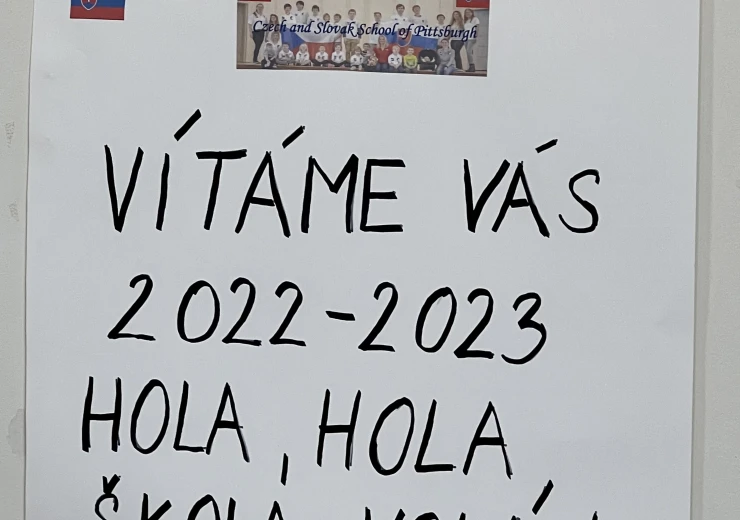 Czech and Slovak School of Pittsburgh
VÍTÁME VÁS
2022-2023
HOLA, HOLA,
ŠKOLA VOLÁ!